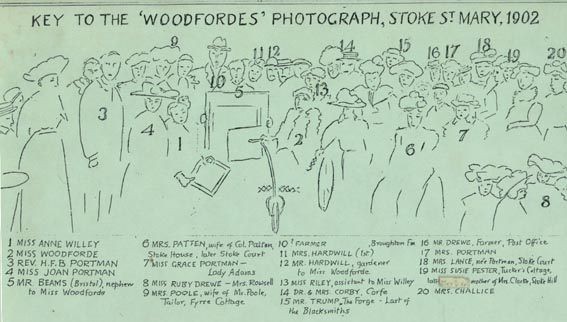 KEY TO THE 'WOODFORDES' PHOTOGRAPH, STOKE ST MARY, 1902
9
10
5
11
12
14
13
15
16
17
18
19
20
3
4
1
2
6
7
8
1 MISS ANNE WILLEY
2 MISS WOODFORDE
3 REV. H.F.B PORTMAN
4 MISS JOAN PORTMAN
5 MR BEAMS (Bristol), nephew
to Miss Woodforde
6 MRS. PATTEN, wife of Col. Patten,
Stoke House, later Stoke Court
7 MISS GRACE PORTMAN -
Lady Adams
8 MISS RUBY DREWE - Mrs. Rowsell
9 MRS. POOLE, wife of Mr. Poole,
Tailor, Fyrse Cottage
10 ? FARMER Broughton Fm
11 MRS. HARDWILL (1st)
12 MR. HARDWILL, gardener
to Miss Woodforde
13 MISS RILEY, assistant to Miss Willey
14 DR. & MRS. CORBY, Corfe
15 MR. TRUMP, The Forge - Last of
the Blacksmiths
16 MR DREWE, Farmer, Post Office
17 MRS. PORTMAN
18 MRS LANCE, née Portman, Stoke Court
19 MISS SUSIE PESTER, Tucker's Cottage,
mother of Mrs. Clarke, Stoke Hill
20 MRS. CHALLICE